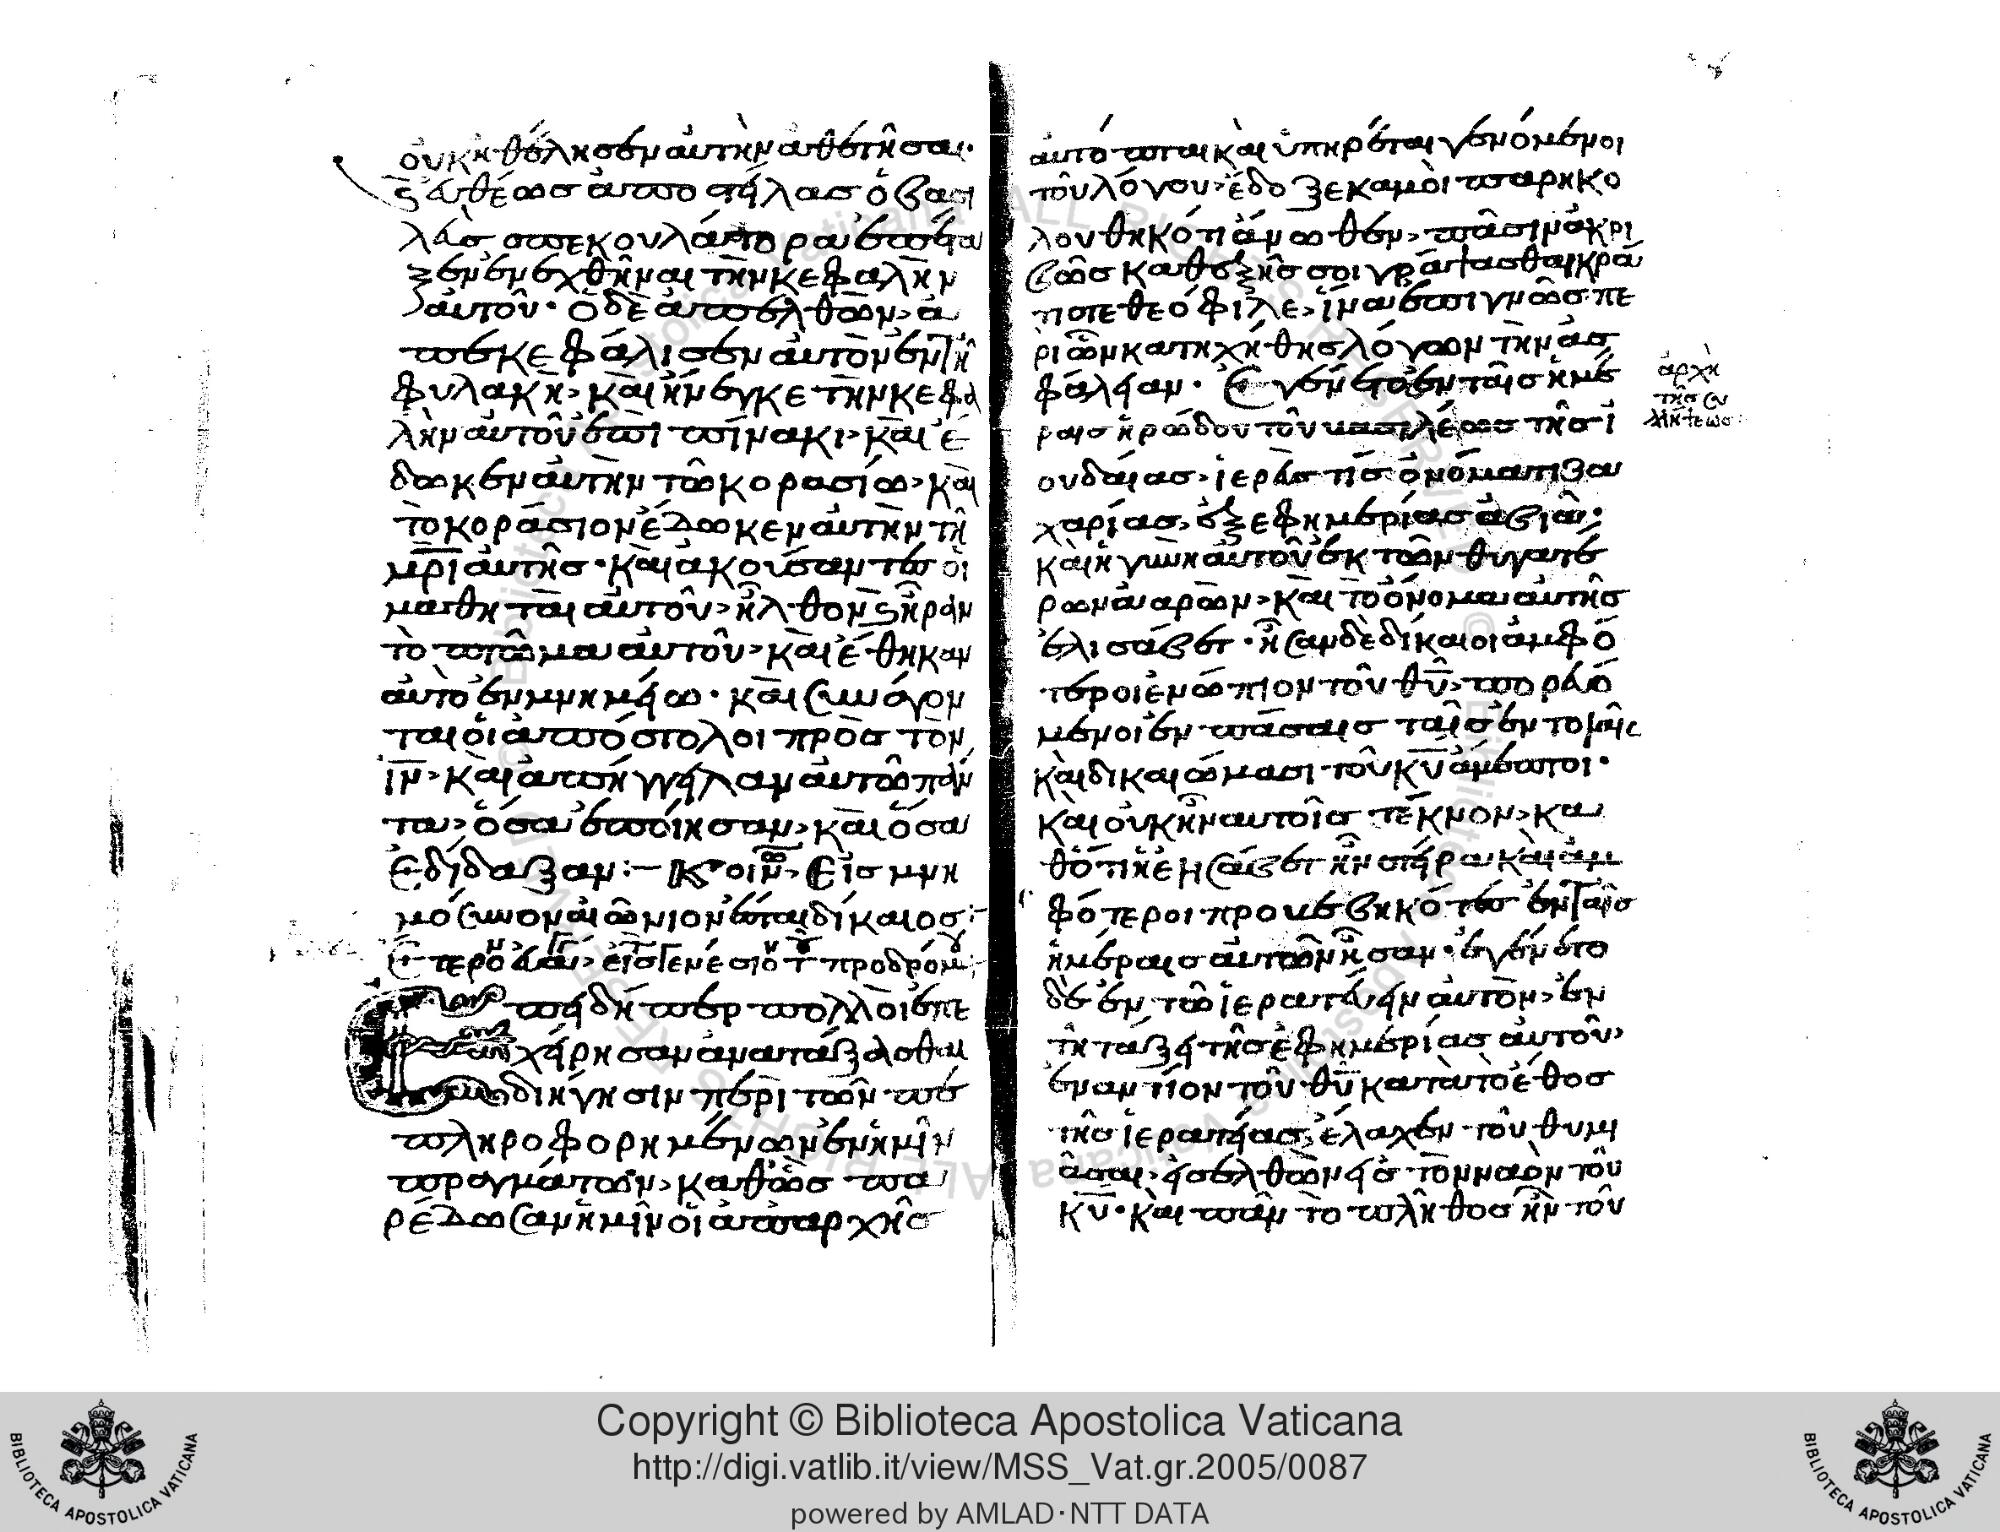 οὐκ ἠθέλησεν αὐτὴν ἀθετῆσαι·
ϗ εὐθέως ἀποστείλας ὁ βασι
λεὺς σπεκουλάτορα ἐπέτα
ξεν ἐνεχθῆναι τὴν κεφαλὴν
αὐτοῦ· ὁ δὲ ἀπελθὼν, ἀ
πεκεφάλισεν αὐτὸν ἐν τῇ
φυλακῇ, καὶ ἤνεγκε τὴν κεφα
λὴν αὐτοῦ ἐπὶ πίνακι, καὶ ἔ
δωκεν αὐτὴν τῷ κορασίῳ, καὶ
τὸ κοράσιον ἔδωκεν αὐτὴν τῇ
μρὶ αὐτῆς· καὶ ἀκούσαντες οἱ
μαθηταὶ αὐτοῦ, ἦλθον ϗ ἦραν
τὸ πτῶμα αὐτοῦ, καὶ ἔθηκαν
αὐτὸ ἐν μνημείω· καὶ συνάγον
ται οἱ ἀπόστολοι πρὸς τὸν
ιν, καὶ ἀπήγγειλαν αὐτῶ πάν
τα, ὅσα ἐποίησαν, καὶ ὅσα
ἐδίδαξαν:– Κοινω, Εἰς μνη
μόσυνον αἰώνιον ἔσται δίκαιος:–
προδρόμου:
πειδήπερ πολλοὶ ἐπε
χείρησαν ἀνατάξασθαι
διήγησιν περὶ τῶν πε
πληροφορημένων ἐν ἡμῖν
πραγμάτων, καθὼς πα
ρέδωσαν ἡμῖν οἱ ἀπαρχῆς
αὐτόπται καὶ ὑπηρέται γενόμενοι
τοῦ λόγου, ἔδοξε καμοὶ παρηκο
λουθηκότι ἄνωθεν, πᾶσιν ἀκρι
βῶς καθεξῆς σοι γράψασθαι κρά
τιστε θεόφιλε, ἵνα ἐπιγνῶς πε
ρὶ ὧν κατηχήθης λόγων τὴν ἀσ
φάλειαν· Ἐγένετο ἐν ταῖς ἡμέ
ραις ἡρώδου τοῦ βασιλέως τῆς ἰ
ουδαίας, ἱερεύς τις ὀνόματι ζα
χαρίας, ἐξ ἐφημερίας ἀβιά·
καὶ ἡ γυνὴ αὐτοῦ ἐκ τῶν θυγατέ
ρων ἀαρὼν, καὶ τὸ ὄνομα αὐτῆς
ἐλισάβετ· ἦσαν δὲ δίκαιοι ἀμφό
τεροι ἐνώπιον τοῦ θυ, πορευό
μενοι ἐν πάσαις ταῖς ἐντολαῖς
καὶ δικαιώμασι τοῦ κυ ἄμεμπτοι·
καὶ οὐκ ἦν αὐτοῖς τέκνον, κα
θότι ἡ ἐλισάβετ ἦν στεῖρα καὶ ἀμ
φότεροι προβεβηκότες ἐν ταῖς
ἡμέραις αὐτῶν ἦσαν· ἐγένετο
δὲ ἐν τῶ ἱερατεύειν αὐτὸν, ἐν
τῆ τάξει τῆς ἐφημερίας αὐτοῦ,
ἐναντίον τοῦ θυ κατὰ τὸ ἔθος
τῆς ἱερατείας, ἔλαχεν τοῦ θυμι
ᾶσαι, εἰσελθὼν εἰς τὸν ναὸν τοῦ
κυ· καὶ πᾶν τὸ πλῆθος ἦν τοῦ
ἀρχὴ
τῆς συ
λλήψεως
Copyright © Biblioteca Apostolica Vaticana
http://digi.vatlib.it/view/MSS_Vat.gr.2005/0087
powered by AMLAD·NTT DATA
BIBLIOTECA APOSTOLICA VATICANA
BIBLIOTECA APOSTOLICA VATICANA